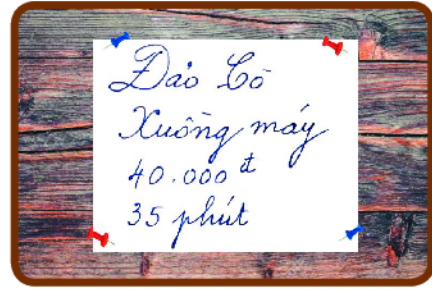 Đảo Cò
Xuồng máy
40.000 đ
35 phút